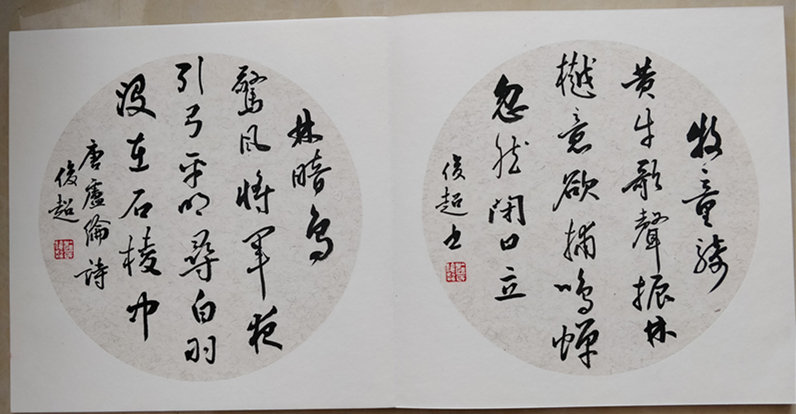 牧童骑
黄牛歌聲振林
樾意欲捕鸣蝉
忽然闭口立
俊超书
林暗草
驚风将军夜
引弓平明尋白羽
没在石棱中
唐盧纶詩
俊超